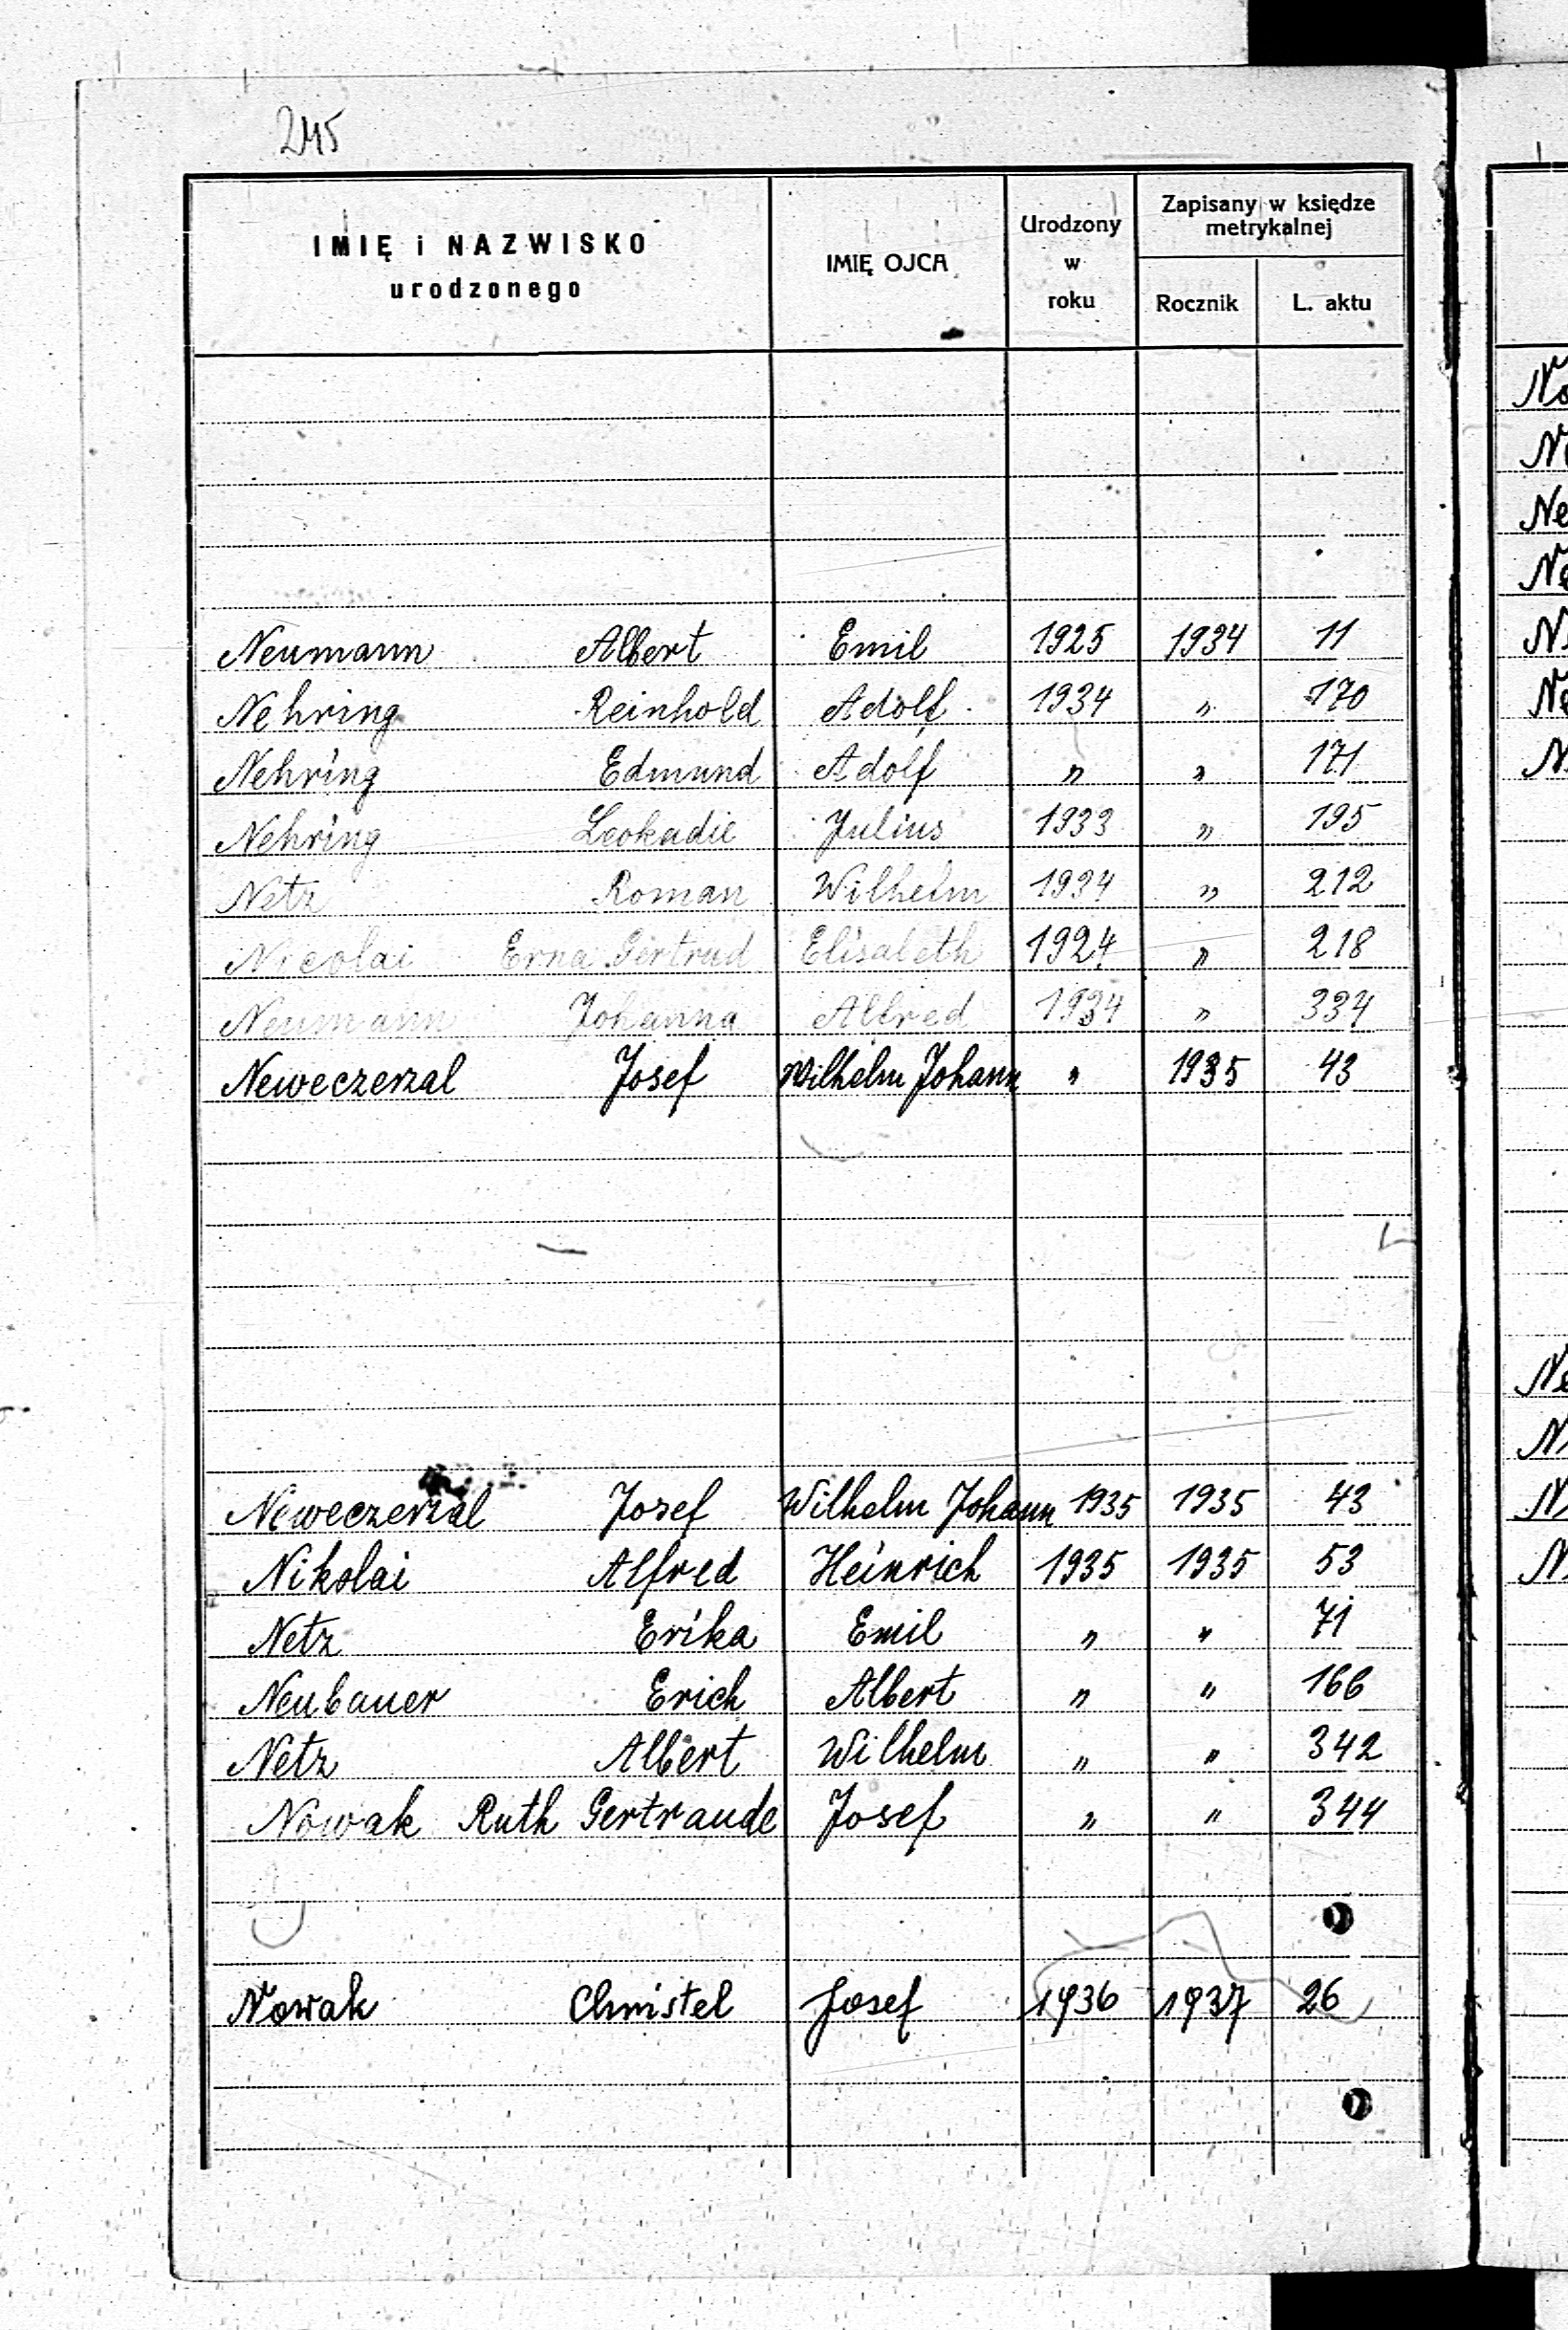 245
IMIĘ i NAZWISKO
urodzonego
IMIĘ OJCA
Urodzony
w
roku
Zapisany w księdze
metrykalnej
Rocznik L. aktu
Neumann Albert Emil 1925 1934 11
Nehring Reinhold Adolf 1934 „ 170
Nehring Edmund Adolf „ „ 171
Nehring Leokadie Julius 1933 „ 195
Netz Roman Wilhelm 1934 „ 212
Nicolai Erna Gertrud Elisabeth 1924 „ 218
Neumann Johanna Alfred 1934 „ 334
Neweczerzal Josef Wilhelm Johann „ 1935 43
Neweczerzal Josef Wilhelm Johann 1935 1935 43
Nikolai Alfred Heinrich 1935 1935 53
Netz Erika Emil „ „ 71
Neubauer Erich Albert „ „ 166
Netz Albert Wilhelm „ „ 342
Nowak Ruth Gertraude Josef „ „ 344
Nowak Christel Josef 1936 1937 26